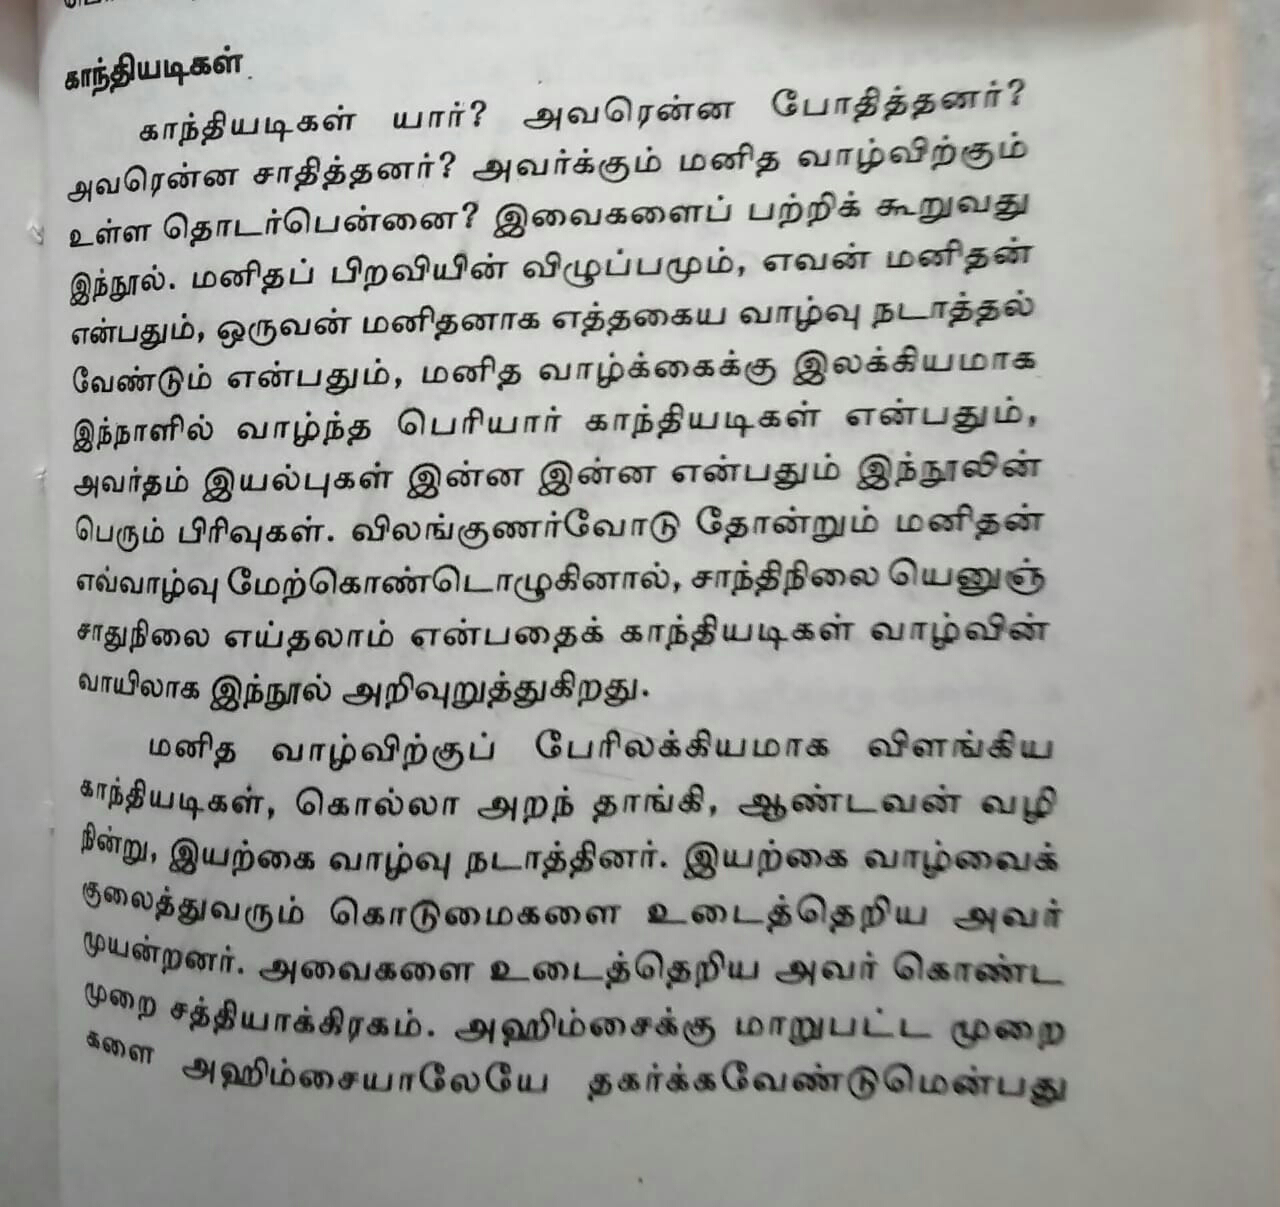 காந்தியடிகள்
காந்தியடிகள் யார்? அவரென்ன போதித்தனர்?
அவரென்ன சாதித்தனர்? அவர்க்கும் மனித வாழ்விற்கும்
உள்ள தொடர்பென்னை? இவைகளைப் பற்றிக் கூறுவது
இந்நூல். மனிதப் பிறவியின் விழுப்பமும், எவன் மனிதன்
என்பதும், ஒருவன் மனிதனாக எத்தகைய வாழ்வு நடாத்தல்
வேண்டும் என்பதும், மனித வாழ்க்கைக்கு இலக்கியமாக
இந்நாளில் வாழ்ந்த பெரியார் காந்தியடிகள் என்பதும்,
அவர்தம் இயல்புகள் இன்ன இன்ன என்பதும் இந்நூலின்
பெரும் பிரிவுகள். விலங்குணர்வோடு தோன்றும் மனிதன்
எவ்வாழ்வு மேற்கொண்டொழுகினால், சாந்திநிலை யெனுஞ்
சாதுநிலை எய்தலாம் என்பதைக் காந்தியடிகள் வாழ்வின்
வாயிலாக இந்நூல் அறிவுறுத்துகிறது.
மனித வாழ்விற்குப் பேரிலக்கியமாக விளங்கிய
காந்தியடிகள், கொல்லா அறந் தாங்கி, ஆண்டவன் வழி
நின்று, இயற்கை வாழ்வு நடாத்தினர். இயற்கை வாழ்வைக்
குலைத்துவரும் கொடுமைகளை உடைத்தெறிய அவர்
முயன்றனர். அவைகளை உடைத்தெறிய அவர் கொண்ட
முறை சத்தியாக்கிரகம். அஹிம்சைக்கு மாறுபட்ட முறை
களை அஹிம்சையாலேயே தகர்க்கவேண்டுமென்பது